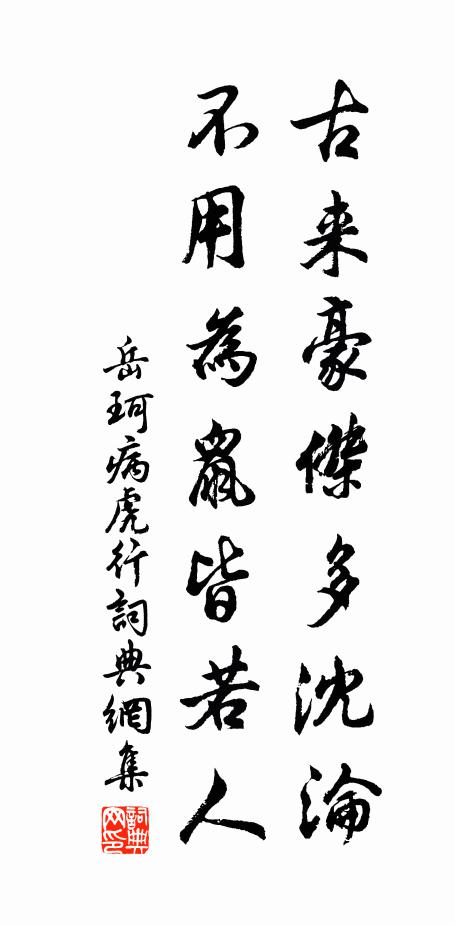 古来豪傑多沈淪
不用為鼠皆若人
岳珂病虎行詞典網集
詞典网印